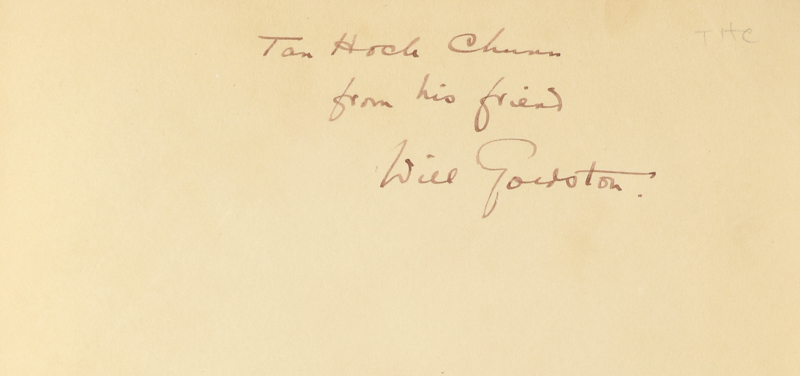 Tan Hock Chuan
THC
from his friend
Will Goldston.